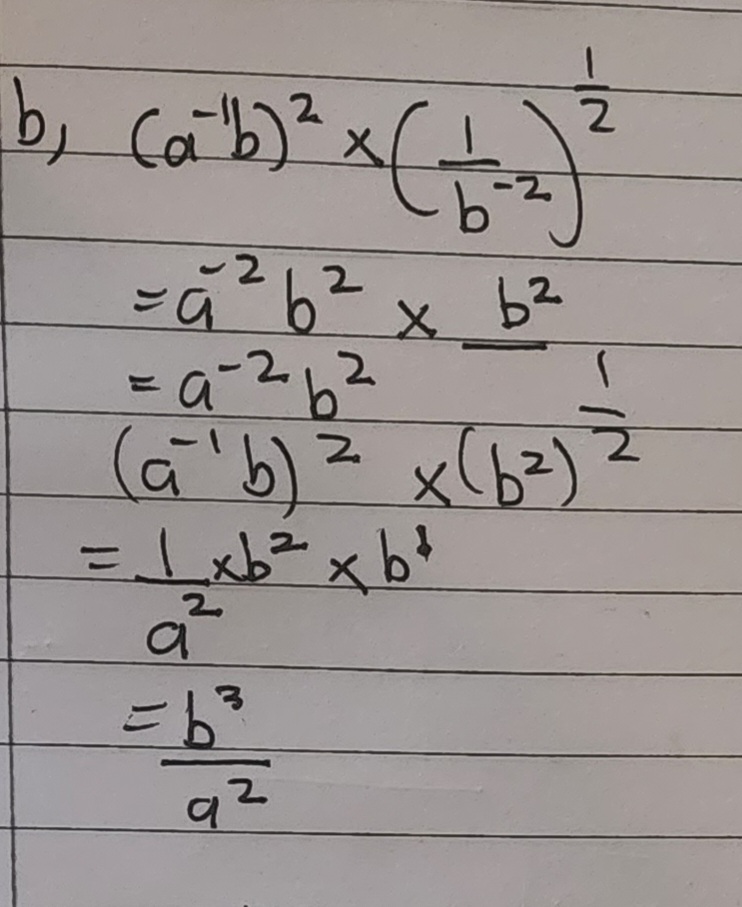 b, (a⁻¹b)² × (1/b⁻²)^(1/2)
= a⁻² b² × b²
= a⁻² b²
(a⁻¹ b)² × (b²)^(1/2)
= 1/a² × b² × b¹
= b³/a²